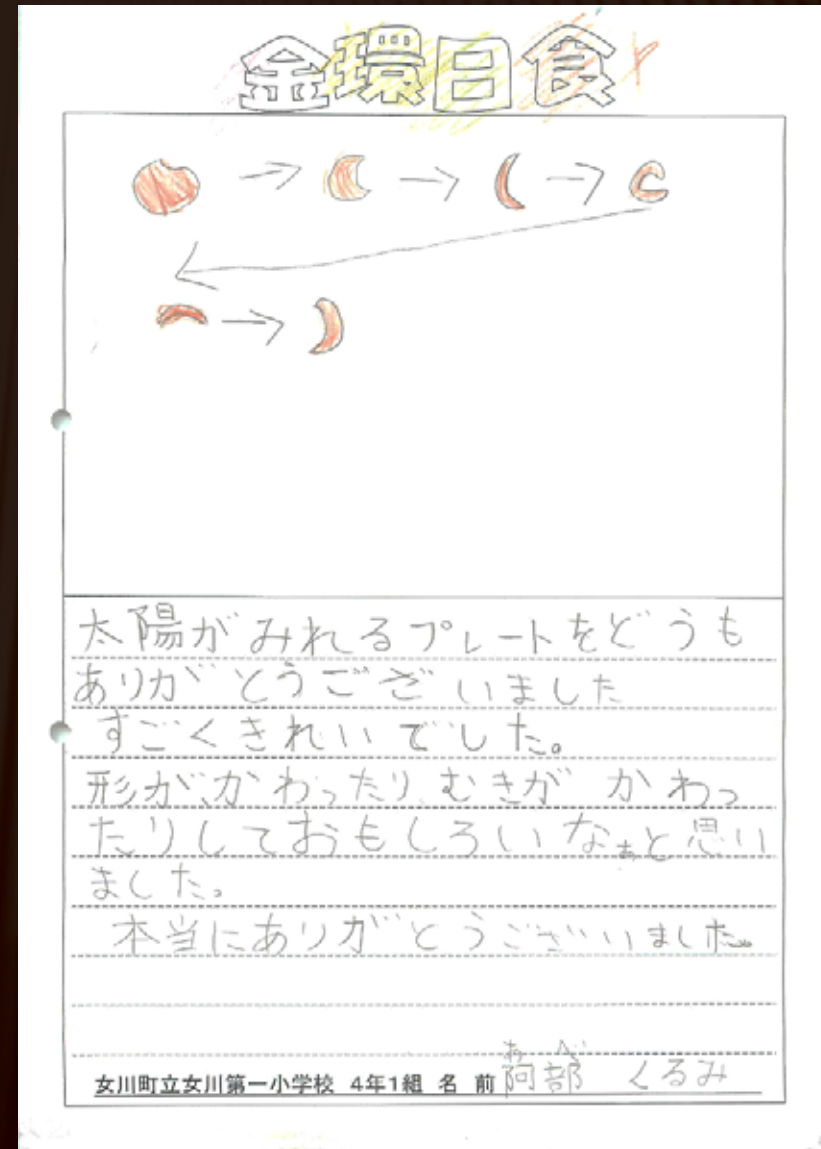 金環日食
太陽がみれるプレートをどうも
ありがとうございました
すごくきれいでした。
形が、かわったり、むきが かわっ
たりしておもしろいなぁと思い
ました。
本当にありがとうございました。
あべ
女川町立女川第一小学校 4年1組 名 前 阿部 くるみ